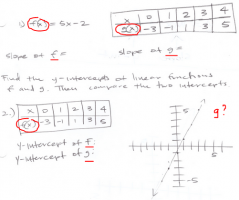 1.) f(x) = 5x - 2
x 0 1 2 3 4
g(x) -3 -1 1 3 5
slope of f =
slope of g =
Find the y-intercepts of linear functions
f and g. Then compare the two intercepts.
2.) x 0 1 2 3 4
g(x) -3 -1 1 3 5
g?
5
5
-5
y-intercept of f
y-intercept of g